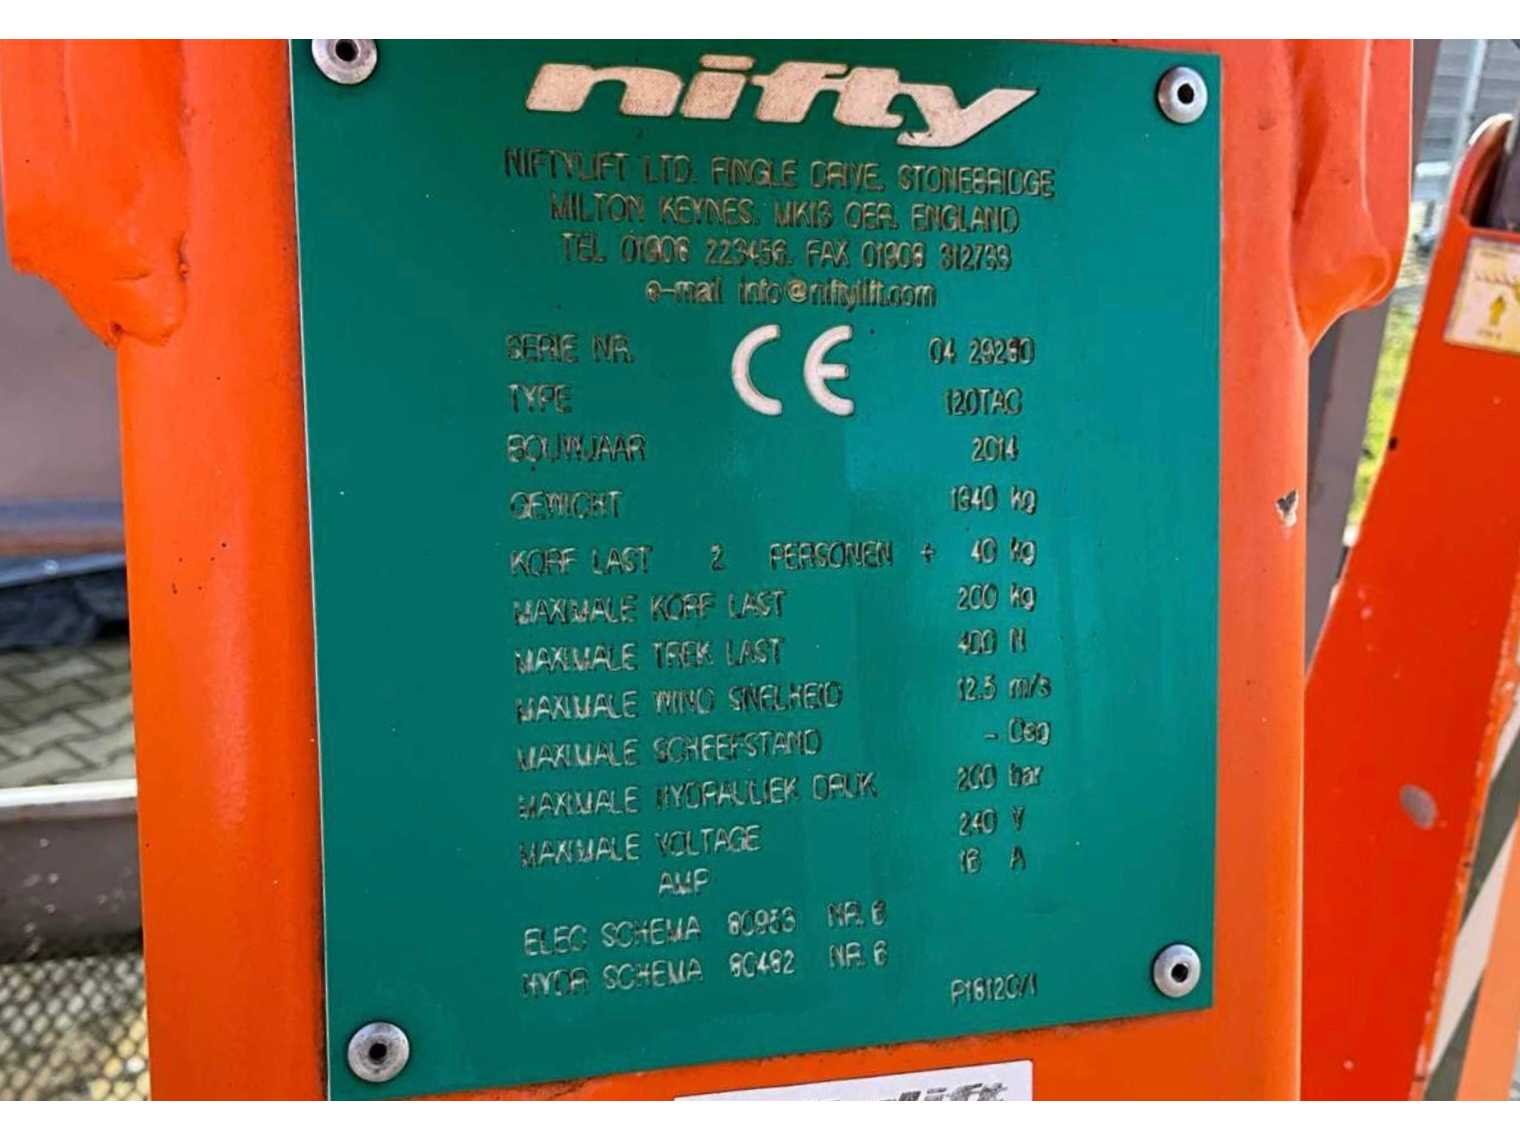 nifty
NIFTYLIFT LTD. FINGLE DRIVE, STONEBRIDGE
MILTON KEYNES. MK13 OER. ENGLAND
TEL 01908 223456. FAX 01908 312733
e-mail info@niftylift.com
SERIE NR. CE 04 29260
TYPE 120TAC
BOUWJAAR 2014
GEWICHT kg
KORF LAST 2 PERSONEN + 40 kg
MAXIMALE KORF LAST 200 kg
MAXIMALE TREK LAST 400 N
MAXIMALE WIND SNELHEID 12.5 m/s
MAXIMALE SCHEEFSTAND - Deg
MAXIMALE HYDRAULIEK DRUK 200 bar
MAXIMALE VOLTAGE 240 V
AMP 16 A
ELEC SCHEMA NR. 6
HYDR SCHEMA NR. 6